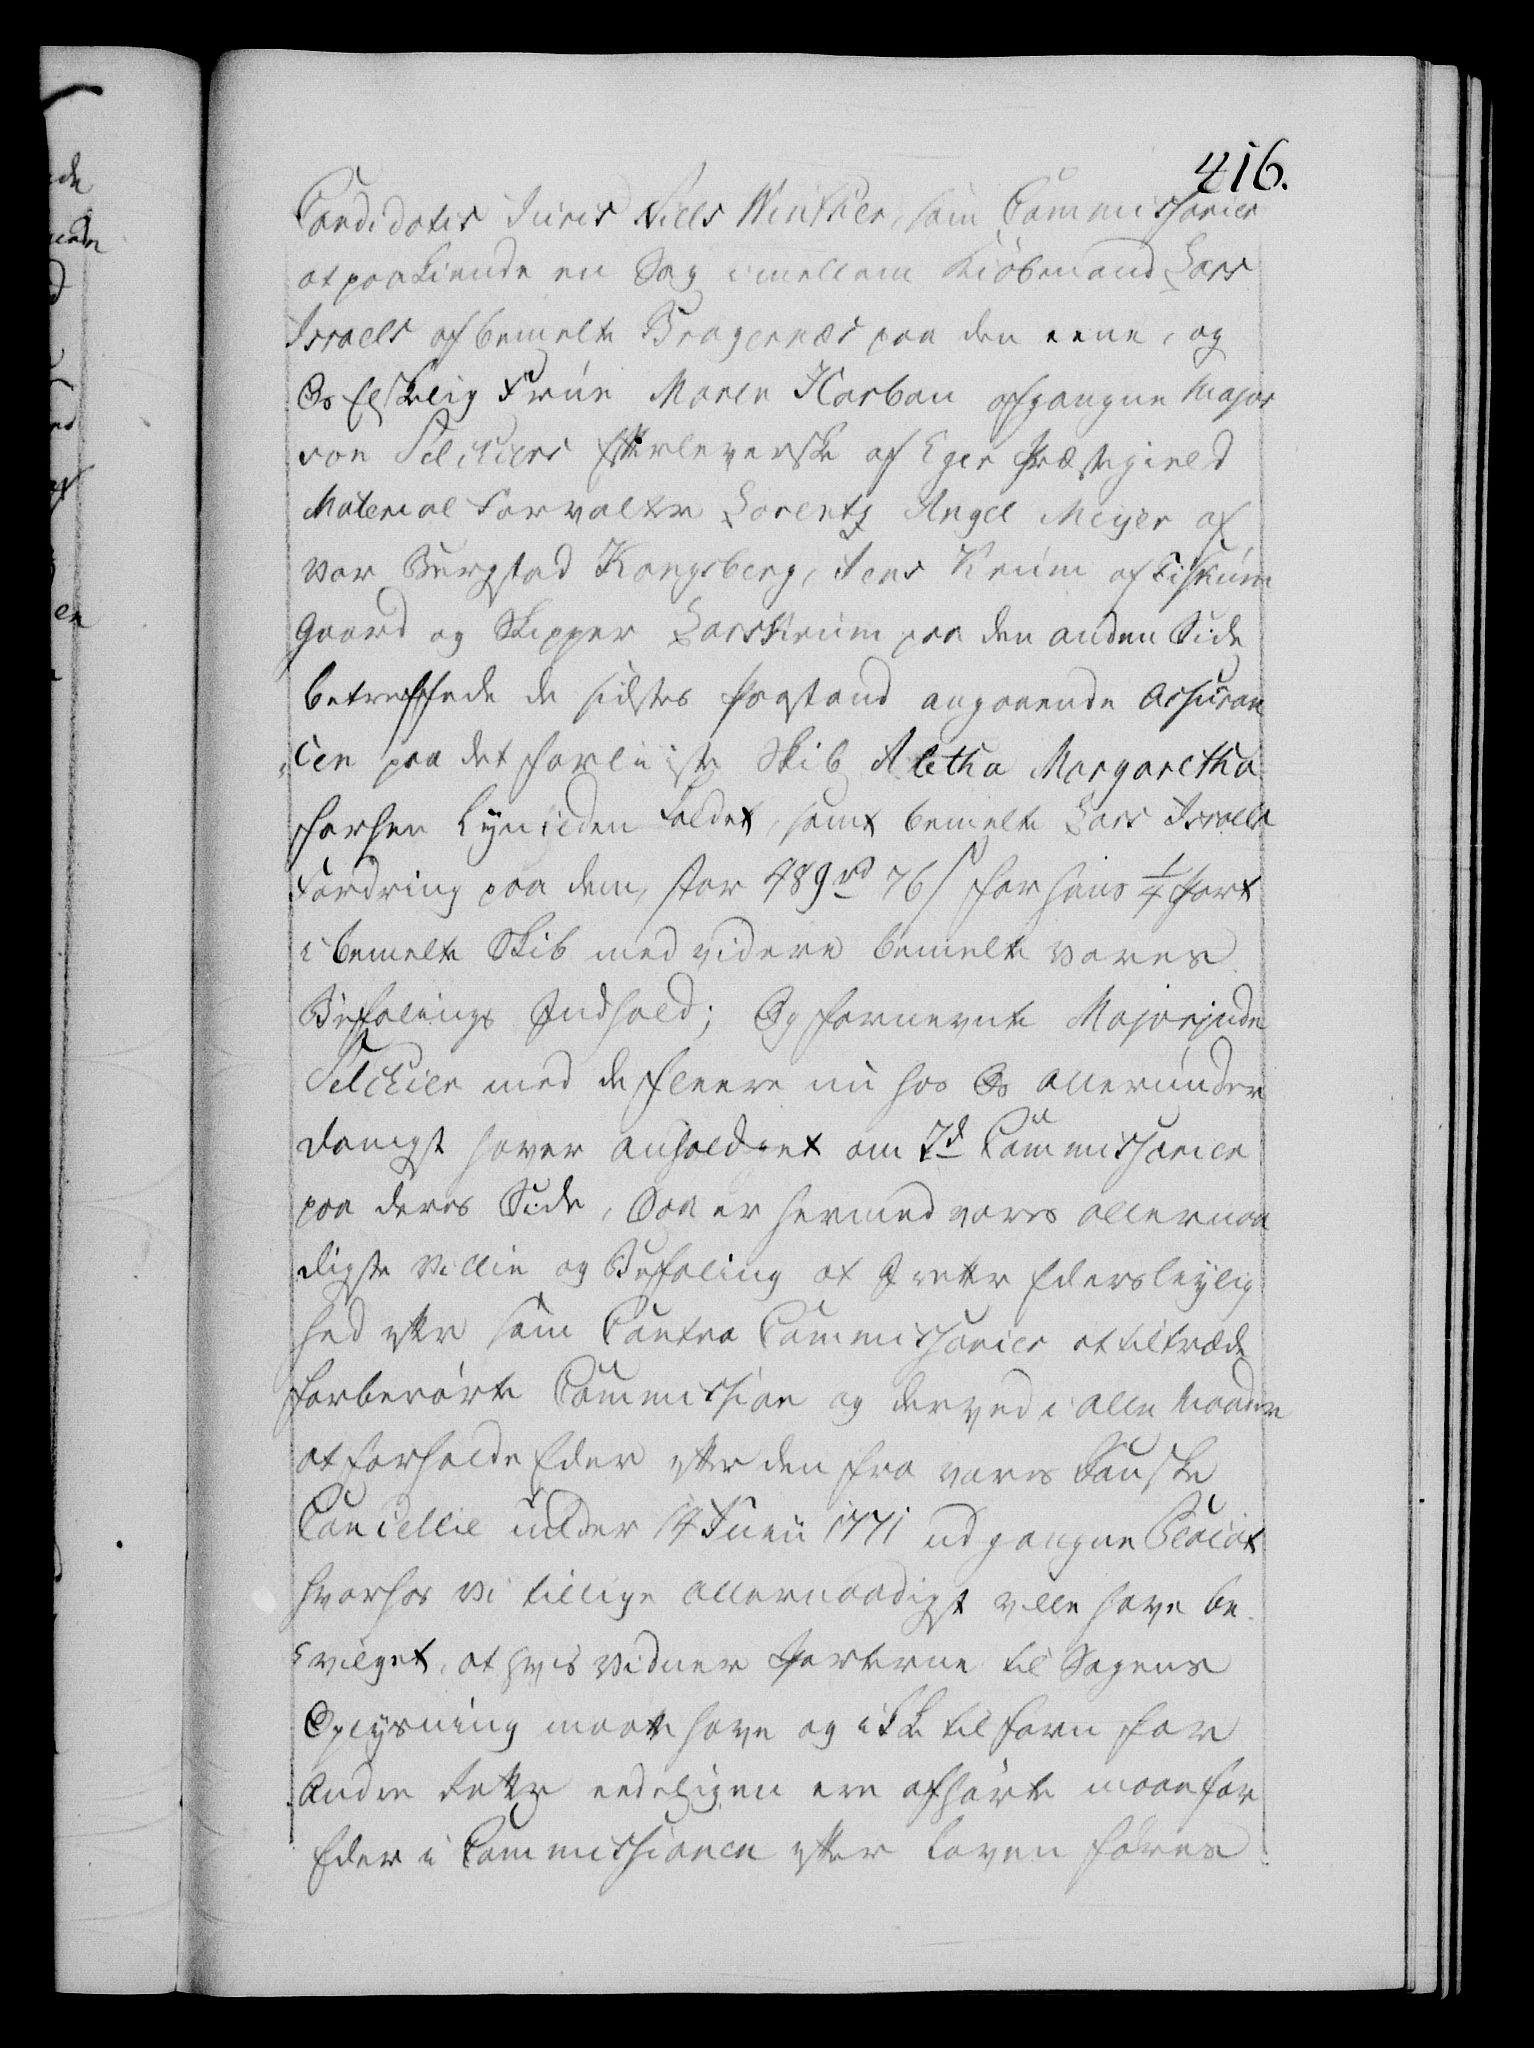 416.
Candidatus Juris Niels Winther, som Commissarier
at paakiende en Sag imellem Kiöbmand Lars
Israels af bemelte Bragernæs paa den eene, og
Os Elskelig Frue Maren Harboe afgangne Major
von Telchiers Efterleverske af Eger Præstegield
Material Forvalter Lorentz Angel Meyer af
vor Bergstad Kongsberg, Jens Krum af Fiskum
Gaard og Skipper Lars Krum paa den anden Side
betreffende de sidstes Paastand angaaende Assuran
cen paa det forliiste Skib Aletha Margaretha
samt bemelte Lars Israels
Fordring paa dem, stor 489 rd 76 s for hans 1/4 Part
i bemelte Skib med videre bemelte vores
Befalings Indhold; Og fornevnte Majorinde
Telchier med de fleere nu hos Os allerunder
danigst haver anholdet om 2de Commissarier
paa deres Side, Saa er hermed vores allernaa
digste Villie og Befaling at I retter Eders leylig
hed efter som Contra Commissarier at tiltræde
forberörte Commission og derved i alle Maader
at forholde Eder efter den fra vores Danske
Cancellie under 14 Junii 1771 udgangne Placat
hvorhos Vi tillige allernaadigst ville have be
vilget, at hvis Vidner Parterne til Sagens
Oplysning maatte have og ikke tilforn for
andre Retter eedeligen ere afhörte maae for
Eder i Commissionen efter Loven föres